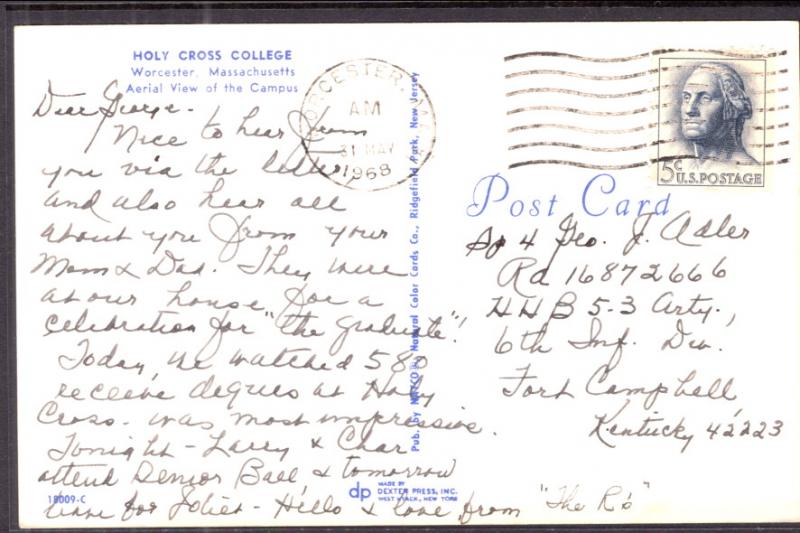 HOLY CROSS COLLEGE
Worcester, Massachusetts
Aerial View of the Campus
WORCESTER, MASS
AM
31 MAY
1968
5c
U.S. POSTAGE
Post Card
Dear George-
Nice to hear from
you via the letter
and also hear all
about you from your
Mom & Dad. They were
at our house for a
celebration for "the graduate"!
Today, we watched 580
receive degrees at Holy
Cross - was most impressive.
Tonight - Larry & Char
attend Senior Ball & tomorrow
leave for Joliet - Hello & love from "The R's"
Sp 4 Geo. J. Adler
Ra 16872666
HHB 5-3 Arty.,
6th Inf. Div.
Fort Campbell,
Kentucky 42223
Pub. by Natural Color Cards Co., Ridgefield Park, New Jersey
18009-C
dp
MADE BY
DEXTER PRESS, INC.
WEST NYACK, NEW YORK